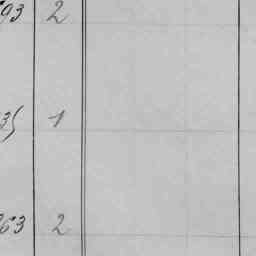 93 2
35 1
63 2